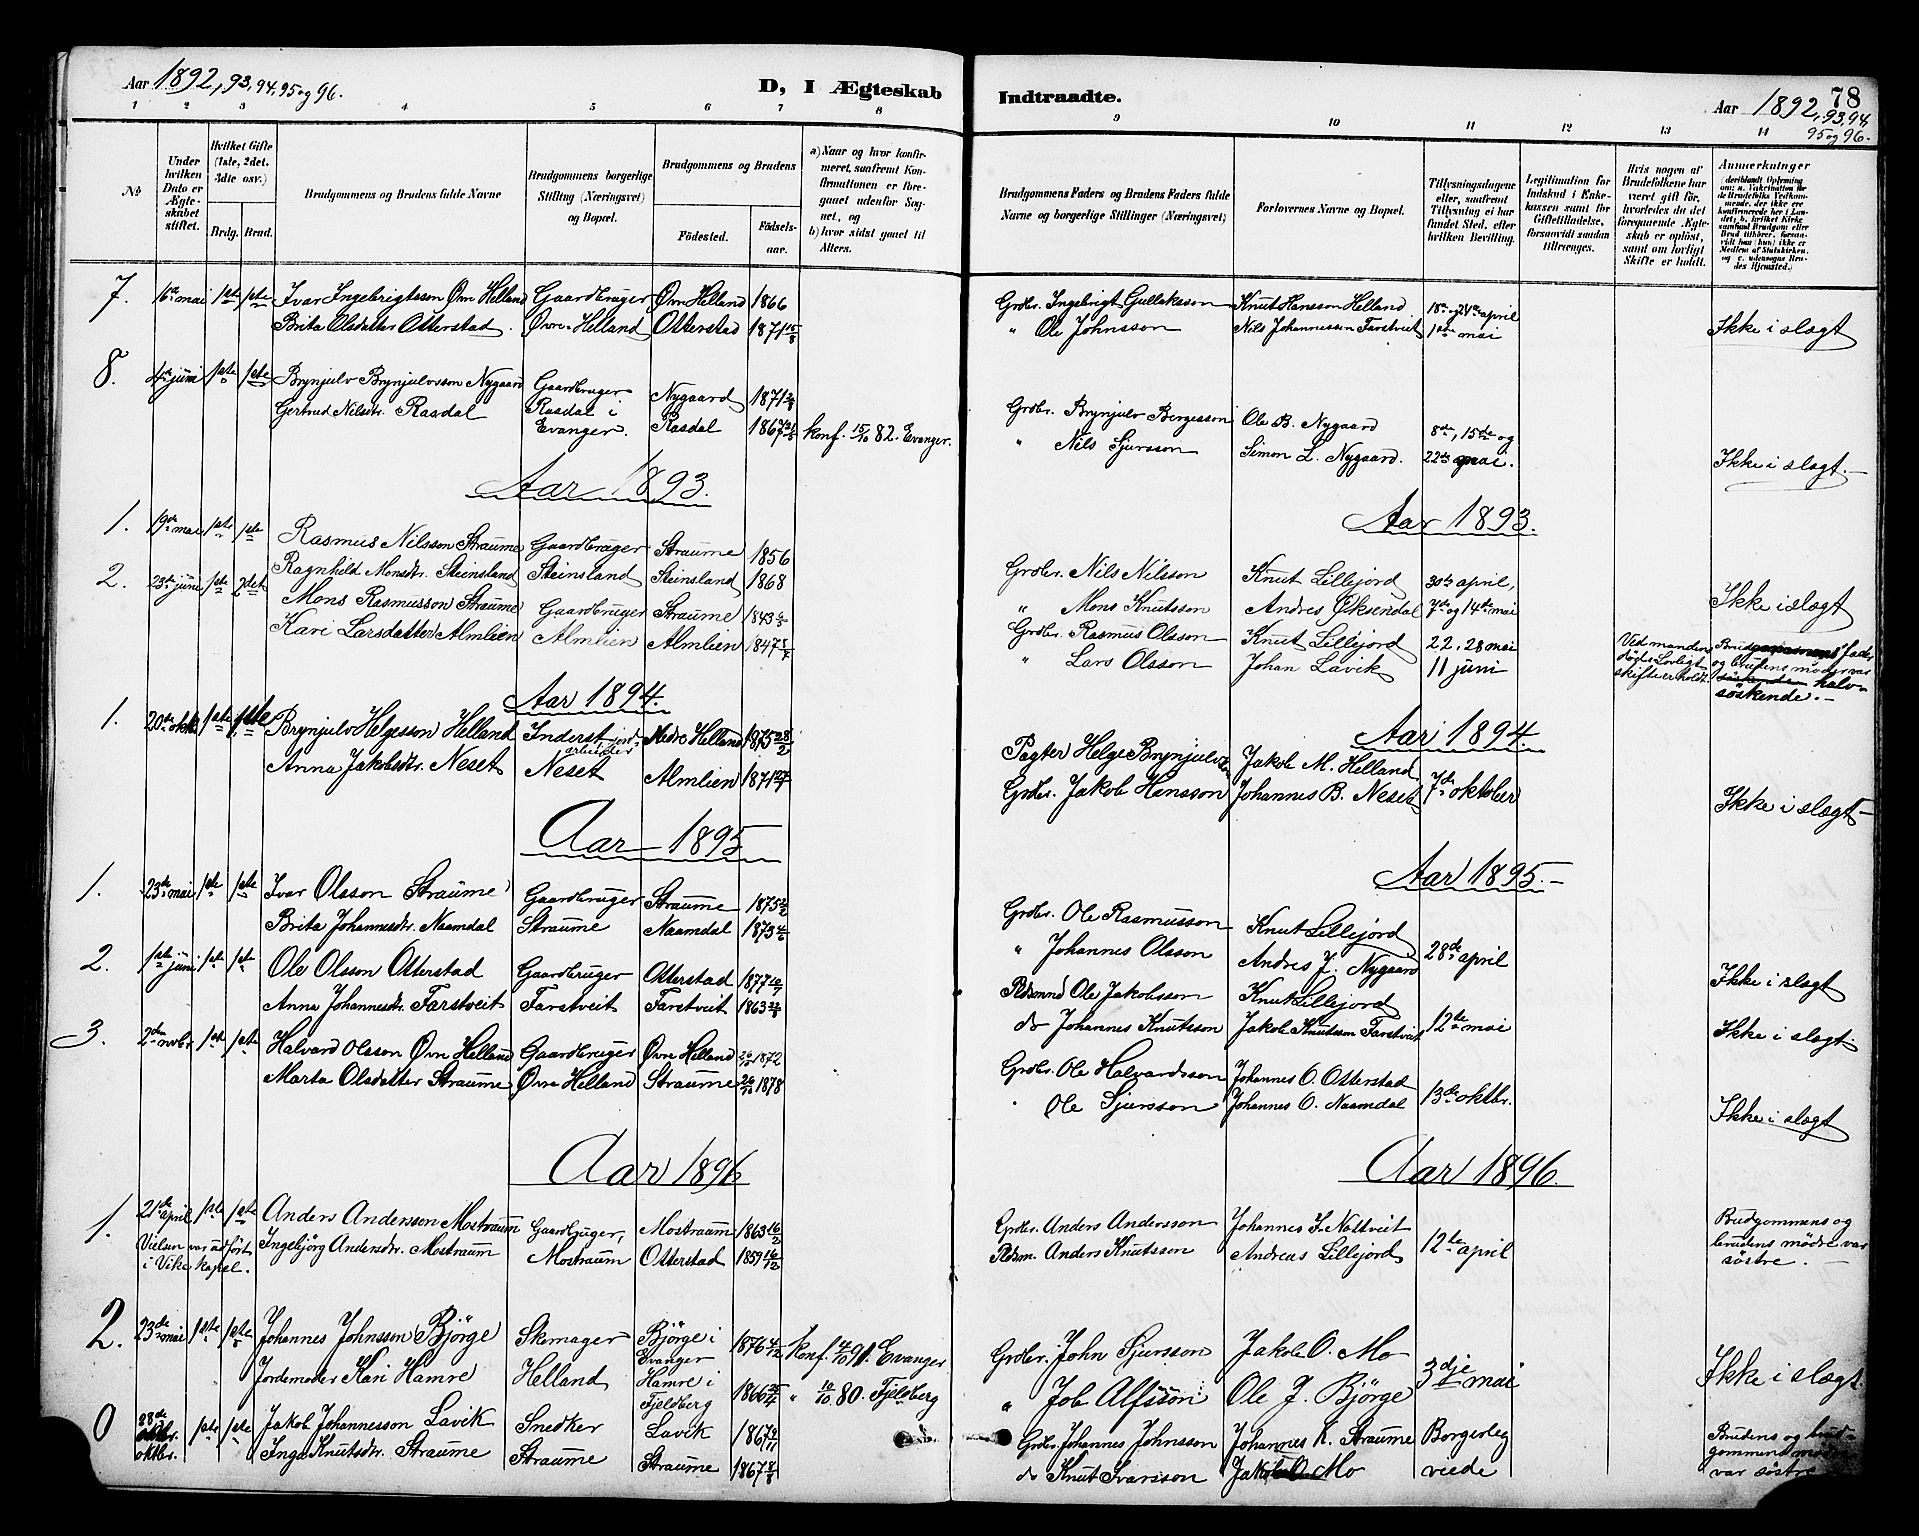 Aar 1892, 93, 94, 95 og 96.
D, I Ægteskab
Indtraadte.
Aar 1892, 93, 94,
95 og 96.
78
1 2 3 4 5 6 7 8
9 10 11 12 13 14
No
Under hvilken Dato er Ægteskabet stiftet.
Hvilket Gifte (1ste, 2det, 3die osv.)
Brdg. Brud.
Brudgommens og Brudens fulde Navne
Brudgommens borgerlige Stilling (Næringsvei) og Bopæl.
Brudgommens og Brudens
Fødested.
Fødselsaar.
a) Naar og hvor konfirmeret, saafremt Konfirmationen er foregaaet udenfor Sognet, og
b) hvor sidst gaaet til Alters.
Brudgommens Faders og Brudens Faders fulde Navne og borgerlige Stillinger (Næringsvei)
Forlovernes Navne og Bopæl.
Tillysningsdagene eller, saafremt Tillysning ei har fundet Sted, efter hvilken Bevilling.
Legitimation for Indskud i Enkekassen samt for Giftetilladelse, forsaavidt saadan tiltrænges.
Hvis nogen af Brudefolkene har været gift før, hvorledes da det foregaaende Ægteskab er opløst, samt om lovligt Skifte er holdt.
Anmærkninger
7. 16de mai 1ste 1ste Ivar Ingebrigtsson Øvre Helland Gaardbruger Øvre Helland 1866
Brita Olsdatter Otterstad. Øvre Helland Otterstad 1871 15/8
Grdbr. Ingebrigt Gullaksson Knut Hansson Helland 18de og 24de april
" Ole Johnsson Nils Johannessen Farstveit 1ste mai Ikke i slægt
8. 4de juni 1ste 1ste Brynjulv Brynjulvsson Nygaard Gaardbruger Nygaard 1871
Gertrud Nilsdtr. Rasdal Rasdal i Evanger. Rasdal 1867 konf. 15/10 82. Evanger.
Grdbr. Brynjulv Bergesson Ole B. Nygaard 8de, 15de og
" Nils Sjursson Simon L. Nygaard. 22de mai. Ikke i slægt.
Aar 1893.
Aar 1893.
1. 19de mai 1ste 1ste Rasmus Nilsson Straume Gaardbruger Straume 1856
Ragnhild Monsdtr. Steinsland Steinsland Steinsland 1868
Grdbr. Nils Nilsson Knut Lillejord 30te april,
" Mons Knutsson Andres Øksendal 7de og 14de mai Ikke i slægt
2. 23de juni 1ste 2det Mons Rasmusson Straume Gaardbruger Straume 1843
Kari Larsdatter Almlien Almlien Almlien 1847
Grdbr. Rasmus Olsson Knut Lillejord 22, 28 mai
" Lars Olsson Johan Lavik 11 juni
Ved mandens død. Lovligt skifte er holdt.
Brudgommens fader og brudens moder var søskende halvsøskende.
Aar 1894.
Aar 1894.
1. 20de oktb 1ste 1ste Brynjulv Helgesson Helland Inderst jordarbeider Nedre Helland 1875 28/2
Anna Jakobsdtr. Neset Neset Almlien 1871
Pagter Helge Brynjulvsen Jakob M. Helland
Grdbr. Jakob Hansson Johannes B. Neset 7de oktober Ikke i slægt
Aar 1895
Aar 1895.
1. 23de mai 1ste 1ste Ivar Olsson Straume Gaardbruger Straume 1875
Brita Johannesdtr. Naamdal Straume Naamdal 1873
Grdbr. Ole Rasmusson Knut Lillejord
" Johannes Olsson Andres J. Nygaard 28de april Ikke i slægt
2. 1ste juni 1ste 1ste Ole Olsson Otterstad Gaardbruger Otterstad 1877
Anna Johannesdtr. Farstveit Farstveit Farstveit 1863
Pldsmnd Ole Jakobsson Knut Lillejord
do Johannes Knutsson Jakob Knutsson Farstveit 12te mai Ikke i slægt.
3. 2den nvbr. 1ste 1ste Halvard Olsson Øvre Helland Gaardbruger Øvre Helland 1872
Marta Olsdatter Straume Øvre Helland Straume 1878
Grdbr. Ole Halvardsson Johannes O. Otterstad
Ole Sjursson Johannes O. Naamdal 13de oktbr. Ikke i slægt
Aar 1896
Aar 1896.
1. 21de april 1ste 1ste Anders Andersson Mostraum Gaardbruger, Mostraum 1863 16/2
Vielsen var udført i Vike kapel. Ingebjørg Andersdtr. Mostraum Mostraum Otterstad 1859 16/12
Grdbr. Anders Andersson Johannes I. Nottveit
Pldsm. Anders Knutsson Andreas Lillejord 12te april
Brudgommens og brudens mødre var søstre.
2. 23de mai 1ste 1ste Johannes Johnsson Bjørge Skomager Bjørge i Evanger 1876 4/12 konf. 4/10 91. Evanger
Jordemoder Kari Hamre Helland Hamre i Fjeldberg 1866 " 10/10 80. Fjeldberg
Grdbr. John Sjursson Jakob O. Mo
" Job Alfsson Ole J. Bjørge 3dje mai Ikke i slægt.
0 28de oktbr. 1ste 1ste Jakob Johannesson Lavik Snedker Lavik 1867 9/11
Inga Knutsdtr. Straume Straume Straume 1867 8/8
Grdbr. Johannes Johnsson Johannes K. Straume Borgerlig
do Knut Ivarsson Jakob O. Mo viede
Brudens og brudgommens mødre var søstre